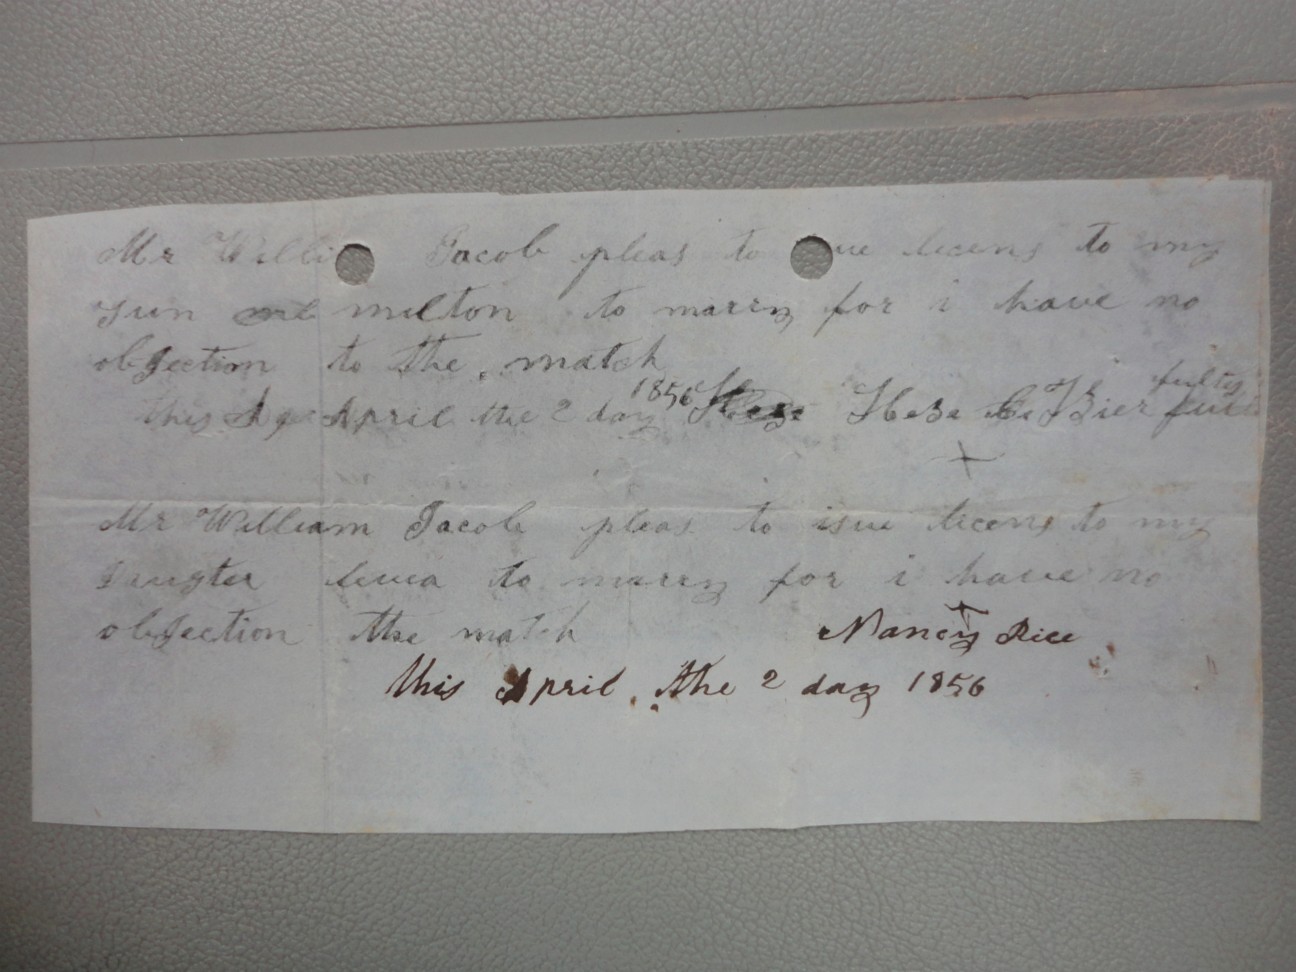 Mr Willi Jacob pleas to ue licens to my
sun milton to marry for i have no
objection to the match
this April the 2 day 1856
Mr William Jacob pleas to isue licens to my
daugter to marry for i have no
objection the match Nancy Rice
this April the 2 day 1856